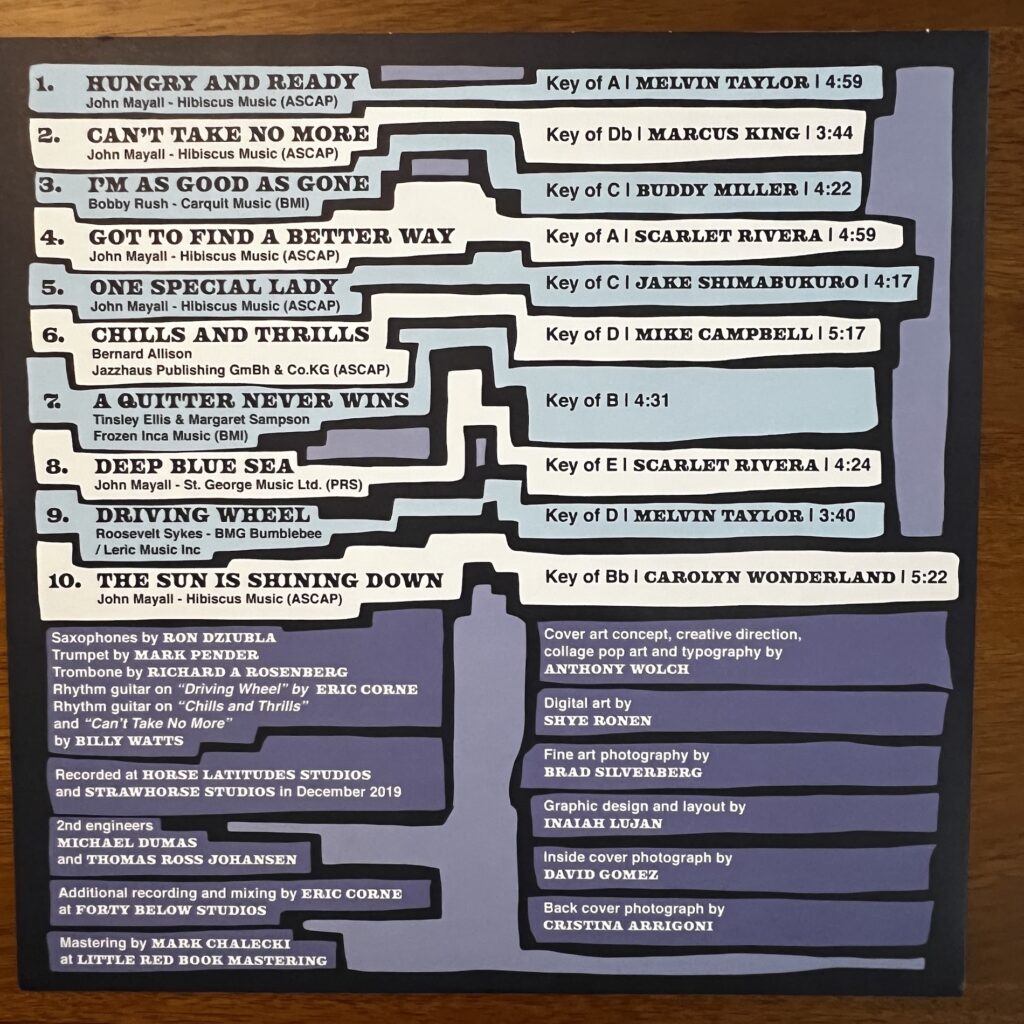 1. HUNGRY AND READY Key of A | MELVIN TAYLOR | 4:59
John Mayall - Hibiscus Music (ASCAP)
2. CAN'T TAKE NO MORE Key of Db | MARCUS KING | 3:44
John Mayall - Hibiscus Music (ASCAP)
3. I'M AS GOOD AS GONE Key of C | BUDDY MILLER | 4:22
Bobby Rush - Carquit Music (BMI)
4. GOT TO FIND A BETTER WAY Key of A | SCARLET RIVERA | 4:59
John Mayall - Hibiscus Music (ASCAP)
5. ONE SPECIAL LADY Key of C | JAKE SHIMABUKURO | 4:17
John Mayall - Hibiscus Music (ASCAP)
6. CHILLS AND THRILLS Key of D | MIKE CAMPBELL | 5:17
Bernard Allison
Jazzhaus Publishing GmBh & Co.KG (ASCAP)
7. A QUITTER NEVER WINS Key of B | 4:31
Tinsley Ellis & Margaret Sampson
Frozen Inca Music (BMI)
8. DEEP BLUE SEA Key of E | SCARLET RIVERA | 4:24
John Mayall - St. George Music Ltd. (PRS)
9. DRIVING WHEEL Key of D | MELVIN TAYLOR | 3:40
Roosevelt Sykes - BMG Bumblebee
/ Leric Music Inc
10. THE SUN IS SHINING DOWN Key of Bb | CAROLYN WONDERLAND | 5:22
John Mayall - Hibiscus Music (ASCAP)
Saxophones by RON DZIUBLA
Trumpet by MARK PENDER
Trombone by RICHARD A ROSENBERG
Rhythm guitar on "Driving Wheel" by ERIC CORNE
Rhythm guitar on "Chills and Thrills"
and "Can't Take No More"
by BILLY WATTS
Recorded at HORSE LATITUDES STUDIOS
and STRAWHORSE STUDIOS in December 2019
2nd engineers
MICHAEL DUMAS
and THOMAS ROSS JOHANSEN
Additional recording and mixing by ERIC CORNE
at FORTY BELOW STUDIOS
Mastering by MARK CHALECKI
at LITTLE RED BOOK MASTERING
Cover art concept, creative direction,
collage pop art and typography by
ANTHONY WOLCH
Digital art by
SHYE RONEN
Fine art photography by
BRAD SILVERBERG
Graphic design and layout by
INAIAH LUJAN
Inside cover photograph by
DAVID GOMEZ
Back cover photograph by
CRISTINA ARRIGONI